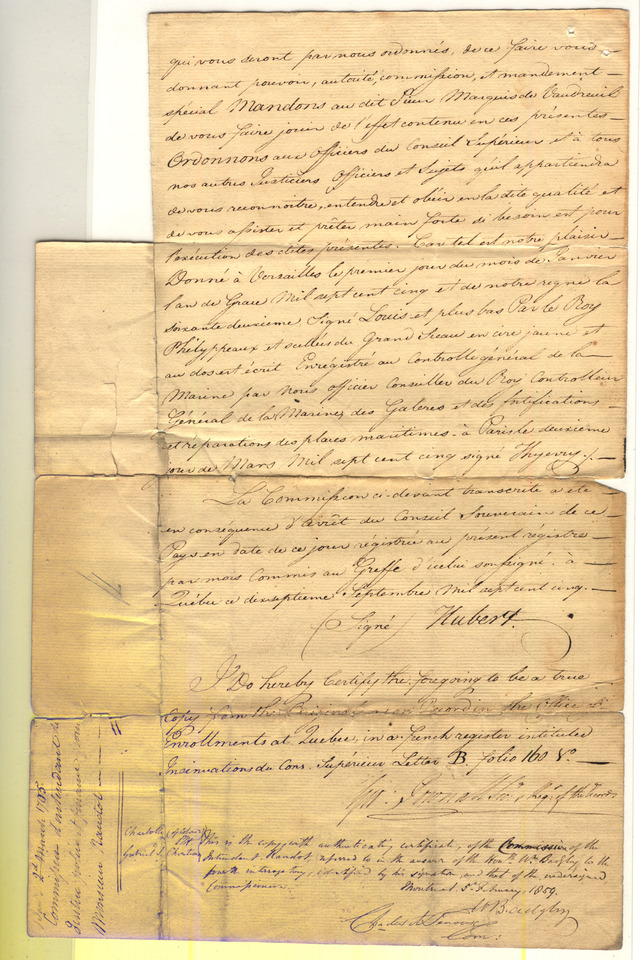 qui vous seront par nous ordonnés, de ce faire vous
donnant pouvoir, autorité, commission, et mandement
spécial Mandons au dit Sieur Marquis de Vaudreuil
de vous faire jouir de l'effet contenu en ces présentes
Ordonnons aux Officiers du Conseil Supérieur et à tous
nos autres Justiciers Officiers et Sujets qu'il appartiendra
de vous reconnoitre, entendre et obéir en la dite qualité et
de vous assister et prêter main forte si besoin est pour
l'exécution des dites présentes. Car tel est notre plaisir
Donné à Versailles le premier jour du mois de Janvier
l'an de Grace Mil sept cent cinq et de notre regne la
soixante deuxieme Signé Louis et plus bas Par le Roy
Phelyppeaux et scellées du Grand Sceau en cire jaune et
au dos est écrit Enrégistré au Controlle général de la
Marine par Nous officier Conseiller du Roy Controlleur
Général de la Marine des Galeres et des fortifications
et réparations des places maritimes. à Paris le deuxieme
jour de Mars Mil sept cent cinq signé
La Commission ci-devant transcrite a été
en consequence d'arrêt du Conseil Souverain de ce
Pays en date de ce jour régistrée au présent régistre
par moi Commis au Greffe d'icelui soussigné. à
Québec ce dixseptieme Septembre Mil sept cent cinq.
(Signé) Hubert.
I Do hereby Certify the foregoing to be a true
Copy from the Original Record in the Office of
Enrollments at Quebec, in a french register intituled
Insinuations du Cons. Supérieur Letter B. folio 160 Vo.
Regr. of the Records
This is the copy with authenticating certificate, of the Commission of the
Intendant J. Raudot, referred to in the answer of the Honble Wm. Badgley to the
fourth interrogatory, identified by his signature, and that of the undersigned
Commissioner
Montreal 5th February, 1859.
W Badgley
Com:
2d March 1705
Commission d'intendant de
Justice police et finances pour
Monsieur Raudot
Charlotte
Gabriel